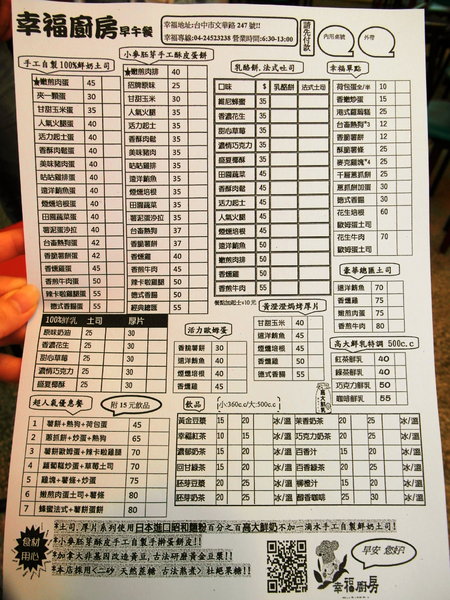 幸福廚房 早午餐
幸福地址:台中市文華路 247 號!!
幸福專線:04-24523238 營業時間:6:30-13:00
請先付款
內用桌號
外帶
手工自製100%鮮奶土司
嫩煎肉蛋 45
夾一顆蛋 30
甘甜玉米蛋 35
人氣火腿蛋 35
活力起士蛋 35
香酥肉鬆蛋 35
美味豬肉蛋 35
咕咕雞排蛋 35
遠洋鮪魚蛋 40
煙燻培根蛋 40
田園蔬菜蛋 40
薯泥蛋沙拉 40
台畜熱狗蛋 42
香脆薯餅蛋 42
香燻雞蛋 45
香煎牛肉蛋 50
辣卡啦雞腿蛋 55
德式香腸蛋 55
小麥胚芽手工酥皮蛋餅
嫩煎肉排 40
招牌原味 25
甘甜玉米 30
人氣火腿 30
活力起士 30
香酥肉鬆 30
美味豬肉 35
咕咕雞排 35
遠洋鮪魚 35
煙燻培根 35
田園蔬菜 35
薯泥蛋沙拉 35
台畜熱狗 37
香脆薯餅 37
香燻雞 40
香煎牛肉 45
辣卡啦雞腿 50
德式香腸 50
經典總匯 55
乳酪餅.法式吐司
口味 $ 乳酪餅 法式土司
維尼蜂蜜 35
香濃花生 35
甜心草莓 35
濃情巧克力 35
盛夏椰酥 35
田園蔬菜 35
香酥肉鬆 35
活力起士 35
人氣火腿 35
煙燻培根 45
遠洋鮪魚 45
香燻雞 50
嫩煎肉排 50
香煎牛肉 50
餐點加起士+10元
幸福單點
荷包蛋全/半 10
香嫩炒蛋 15
港式蘿蔔糕 25
台畜熱狗*3 12
香脆薯餅 12
酥脆薯條 25
麥克雞塊*4 25
千層蔥抓餅 25
蔥抓餅加蛋 30
德式香腸 30
花生培根 60
歐姆蛋土司
花生牛肉 70
歐姆蛋土司
豪華總匯土司
遠洋鮪魚 75
香燻雞 75
嫩煎肉蛋 75
香煎牛肉 80
100%鮮乳 土司 厚片
原味奶油 25 30
香濃花生 25 30
甜心草莓 25 30
濃情巧克力 25 30
盛夏椰酥 25 30
活力歐姆蛋
香脆薯餅 30
嫩煎肉排 40
煙燻培根 40
遠洋鮪魚 45
香燻雞 45
黃澄澄焗烤厚片
甘甜玉米 40
遠洋鮪魚 45
煙燻培根 45
香燻雞 55
德式香腸 55
高大鮮乳特調 500c.c
紅茶鮮乳 40
綠茶鮮乳 40
巧克力鮮乳 50
咖啡鮮乳 55
超人氣優惠餐
附15元飲品
1 薯餅+熱狗+荷包蛋 45
2 蔥抓餅+炒蛋+熱狗 65
3 薯餅歐姆蛋+辣卡啦雞腿 70
4 蘿蔔糕+炒蛋+草莓土司 70
5 雞塊+薯條+炒蛋 70
6 嫩煎肉蛋土司+薯條 80
7 蜂蜜法式+薯餅蛋餅 80
飲品
小:360c.c/大:500c.c
高大鮮乳
黃金豆漿 15 20 冰/溫 茉香奶茶 20 25 冰/溫
幸福紅茶 10 15 冰/溫 巧克力奶茶 20 30 冰/溫
濃郁奶茶 15 20 冰/溫 百香汁 15 20 冰/溫
回甘綠茶 10 15 冰/溫 百香綠茶 20 30 冰/溫
胚芽豆漿 15 20 冰/溫 柳橙汁 15 20 冰/溫
胚芽奶茶 20 25 冰/溫 醇香咖啡 25 35 冰/溫
食材用心
*土司.厚片系列使用日本進口昭和麵粉百分之百高大鮮奶不加一滴水手工自製鮮奶土司!
*小麥胚芽酥皮手工自製手擀蛋餅皮!
*加拿大非基因改造黃豆,古法研磨黃金豆漿!!
*本店採用<二砂 天然蔗糖 古法熬煮> 杜絕果糖!!
早安 您好!
幸福廚房